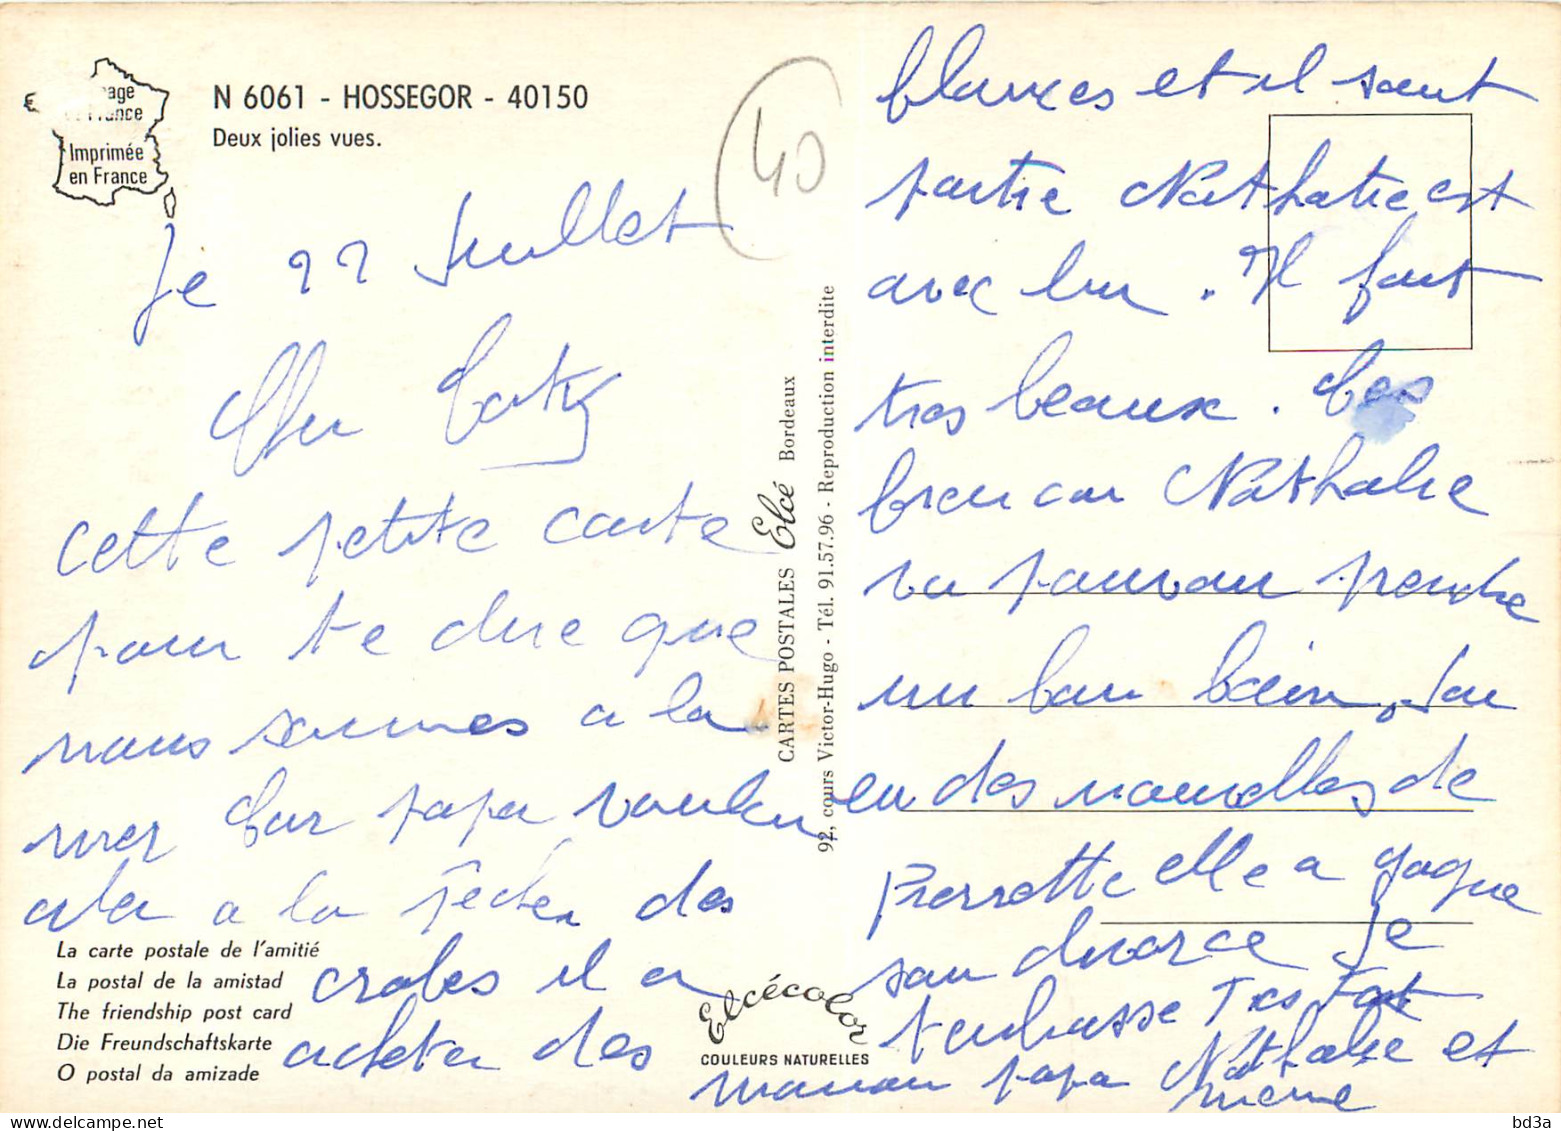 Image
de France
Imprimée
en France
N 6061 - HOSSEGOR - 40150
Deux jolies vues.
40
Je 22 Juillet
Cher
cette petite carte
pour te dire que
nous sommes a la
mer papa
a la des
crabes il a
acheter des
La carte postale de l'amitié
La postal de la amistad
The friendship post card
Die Freundschaftskarte
O postal da amizade
CARTES POSTALES Elcé Bordeaux
92, cours Victor-Hugo - Tél. 91.57.96 - Reproduction interdite
Elcécolor
COULEURS NATURELLES
et il sont
partie Nathalie est
avec lui. Il fait
tres beaux.
bien car Nathalie
va pouvoir prendre
un bon bain. Jai
eu des nouvelles de
Pierrette elle a gagne
son divorce Je
tenbrasse Tres Fort
maman papa Nathalie et
meme
bd3a